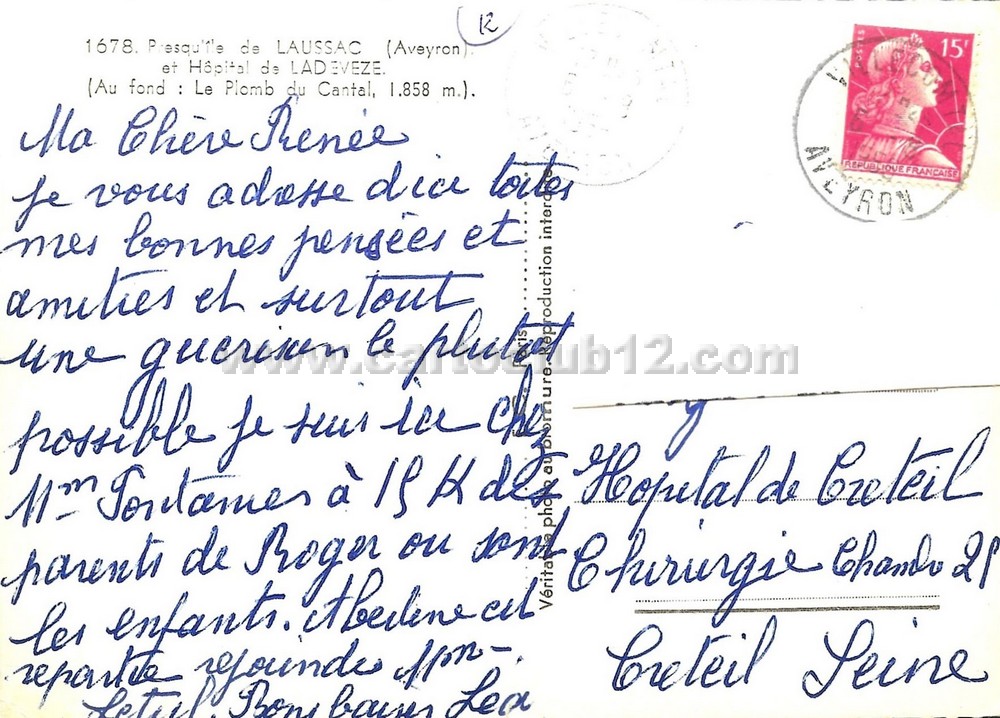 12
1678. Presqu'île de LAUSSAC (Aveyron).
et Hôpital de LADEVEZE.
(Au fond : Le Plomb du Cantal, 1.858 m.).
Ma Chère Renée
Je vous adasse dici toites
mes bonnes pensées et
amities et surtout
une guerison le plutot
possible je suis ice chez
Mm Fontanies à 15 K des
parents de Roger ou sont
les enfants. Abeline est
repartie rejoindre Mm
Letul. Bons baisers Lea
Véritable photo au bromure. Reproduction interdite
Paris
POSTES
15F
REPUBLIQUE FRANÇAISE
AVEYRON
Hopital de Creteil
Chirurgie Chambr 29
Creteil Seine
www.cartoclub12.com